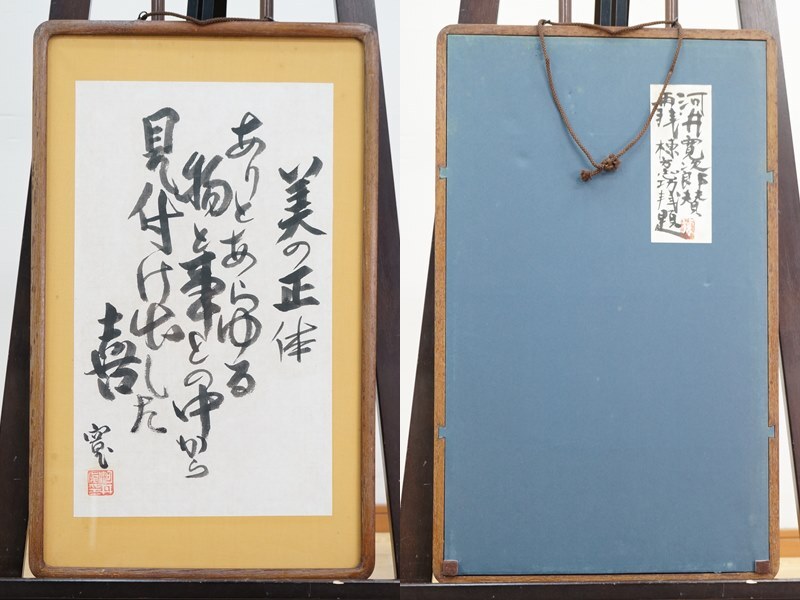 美の正体
ありとあらゆる
物と事との中から
見付け出した
喜
寛
河井寛次郎賛
拝題